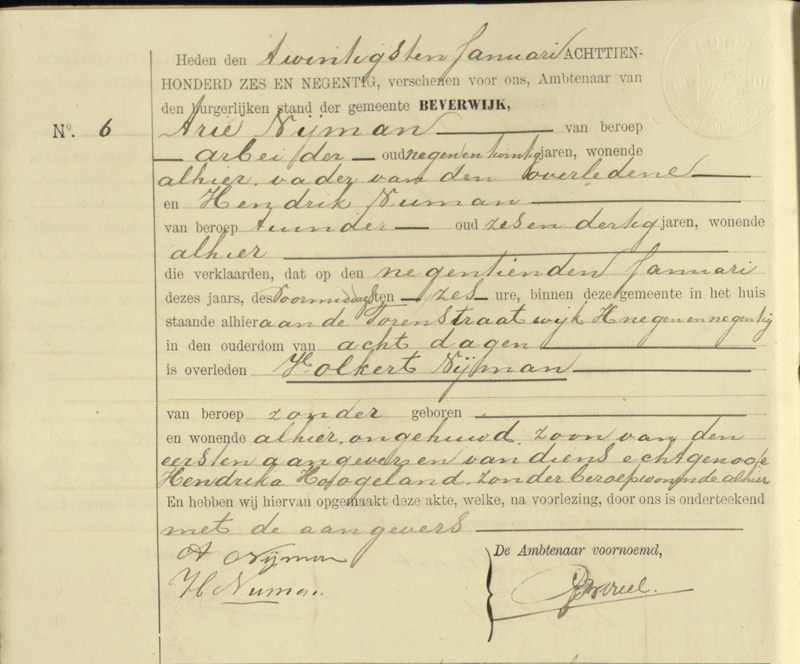 Heden den twintigsten Januari ACHTTIEN-
HONDERD ZES EN NEGENTIG, verschenen voor ons, Ambtenaar van
den burgerlijken stand der gemeente BEVERWIJK,
No. 6 Arie Nijman van beroep
arbeider oud negen en twintig jaren, wonende
alhier, vader van den overledene
en Hendrik Numan
van beroep tuinder oud zes en dertig jaren, wonende
alhier
die verklaarden, dat op den negentienden Januari
dezes jaars, des Voormiddags ten zes ure, binnen deze gemeente in het huis
staande alhier aan de Torenstraat wijk H negen en negentig
in den ouderdom van acht dagen
is overleden Volkert Nijman
van beroep zonder geboren
en wonende alhier, ongehuwd, zoon van den
eersten aangever en van diens echtgenoote
Hendrika Hoogeland, zonder beroep wonende alhier
En hebben wij hiervan opgemaakt deze akte, welke, na voorlezing, door ons is onderteekend
met de aangevers
A Nijman De Ambtenaar voornoemd,
H Numan.